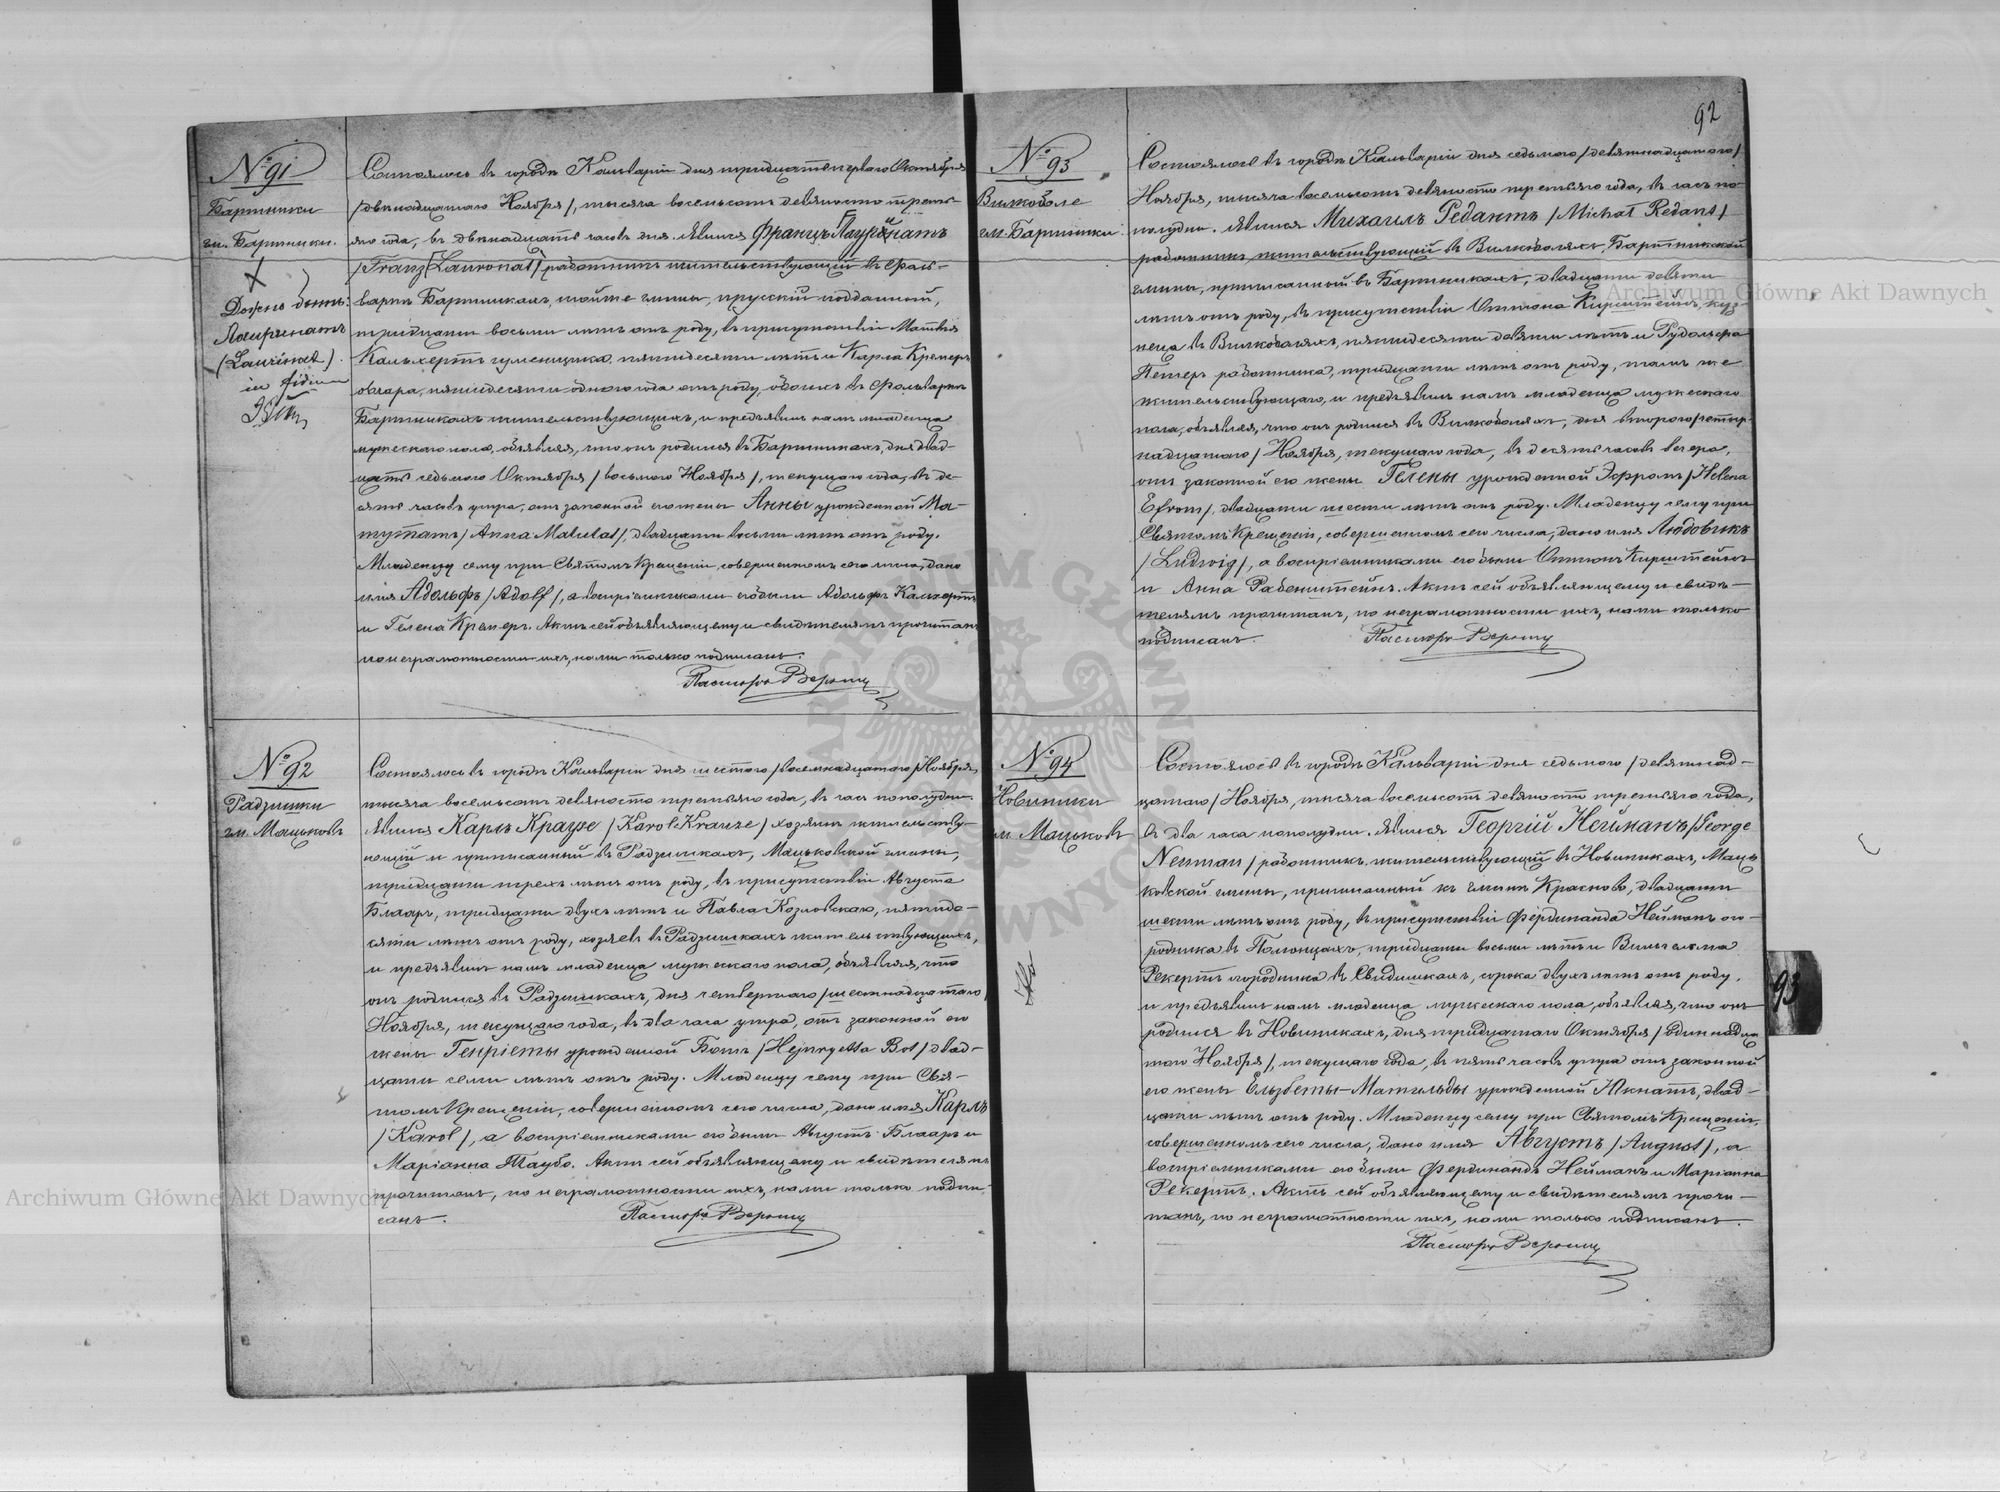 № 91
Бартники
гм. Бартники.
Должно быть:
Лауринатъ
(Laurinat).
in fidem
Состоялось въ городѣ Кальваріи дня тридцать перваго Октября
/двѣнадцатаго Ноября/, тысяча восемьсотъ девяносто треть-
яго года, въ двѣнадцать часовъ дня. Явился Францъ Лауронатъ
/Franz Lauronat/ работникъ жительствующій въ фоль-
варкѣ Бартникахъ, тойже гмины, прусскій подданный,
тридцати восьми лѣтъ отъ роду, въ присутствіи Матвѣя
Кальхертъ гуменщика, пятидесяти лѣтъ и Карла Кремеръ
овчара, пятидесяти одного года отъ роду, обоихъ въ фольваркѣ
Бартникахъ жительствующихъ, и предъявилъ намъ младенца
мужескаго пола, объявляя, что онъ родился въ Бартникахъ, дня двад-
цать седьмого Октября /восьмого Ноября/, текущаго года, въ де-
сять часовъ утра, отъ законной его жены Анны урожденной Ма-
тутатъ /Anna Matutat/, двадцати восьми лѣтъ отъ роду.
Младенцу сему при Святомъ Крещеніи, совершенномъ сего числа, дано
имя Адольфъ /Adolf/, а воспріемниками его были Адольфъ Кальхертъ
и Гелена Кремеръ. Актъ сей объявляющему и свидѣтелямъ прочитанъ
по неграмотности ихъ, нами только подписанъ.
Пасторъ
№ 92
Радзишки
гм. Мацьковъ
Состоялось въ городѣ Кальваріи дня шестого /восемнадцатаго/ Ноября,
тысяча восемьсотъ девяносто третьяго года, въ часъ пополудни.
Явился Карлъ Краузе /Karol Krauze/ хозяинъ жительству-
ющій и приписанный въ Радзишкахъ, Мацьковской гмины,
тридцати трехъ лѣтъ отъ роду, въ присутствіи Августа
Блааръ, тридцати двухъ лѣтъ и Павла Козловскаго, пятиде-
сяти лѣтъ отъ роду, хозяевъ въ Радзишкахъ жительствующихъ,
и предъявилъ намъ младенца мужескаго пола, объявляя, что
онъ родился въ Радзишкахъ, дня четвертаго /шестнадцатаго/
Ноября, текущаго года, въ два часа утра, отъ законной его
жены Генріеты урожденной Ботъ /Hejnryetta Bot/ двад-
цати семи лѣтъ отъ роду. Младенцу сему при Свя-
томъ Крещеніи, совершенномъ сего числа, дано имя Карлъ
/Karol/, а воспріемниками его были Августъ Блааръ и
Маріанна Таубе. Актъ сей объявляющему и свидѣтелямъ
прочитанъ, по неграмотности ихъ, нами только подпи-
санъ.
Пасторъ
92
№ 93
Вилкоболе
гм. Бартники
Состоялось въ городѣ Кальваріи дня седьмого /девятнадцатаго/
Ноября, тысяча восемьсотъ девяносто третьяго года, въ часъ по-
полудни. Явился Михаилъ Редантъ /Michał Redant/
работникъ, жительствующій въ Вилкоболяхъ, Бартникской
гмины, приписанный въ Бартникахъ, двадцати девяти
лѣтъ отъ роду, въ присутствіи Оттона Кирштейнъ, куз-
неца въ Вилкоболяхъ, пятидесяти девяти лѣтъ и Рудольфа
Петеръ работника, тридцати лѣтъ отъ роду, тамъ же
жительствующаго, и предъявилъ намъ младенца мужескаго
пола, объявляя, что онъ родился въ Вилкоболяхъ, дня второго /четыр-
надцатаго/ Ноября, текущаго года, въ десять часовъ вечера,
отъ законной его жены Гелены урожденной Эфромъ /Helena
Efrom/, двадцати шести лѣтъ отъ роду. Младенцу сему при
Святомъ Крещеніи, совершенномъ сего числа, дано имя Людовикъ
/Ludwig/, а воспріемниками его были Оттонъ Кирштейнъ
и Анна Рабенштейнъ. Актъ сей объявляющему и свидѣ-
телямъ прочитанъ, по неграмотности ихъ, нами только
подписанъ.
Пасторъ
№ 94
Новиники
гм. Мацьковъ
Состоялось въ городѣ Кальваріи дня седьмого /девятнад-
цатаго/ Ноября, тысяча восемьсотъ девяносто третьяго года,
въ два часа пополудни. Явился Георгій Нейманъ /George
Neuman/ работникъ, жительствующій въ Новиникахъ, Маць-
ковской гмины, приписанный къ гминѣ Красново, двадцати
шести лѣтъ отъ роду, въ присутствіи Фердинанда Нейманъ ого-
родника въ Полюнцахъ, тридцати восьми лѣтъ и Вильгельма
Рекертъ огородника въ Свидишкахъ, сорока двухъ лѣтъ отъ роду,
и предъявилъ намъ младенца мужескаго пола, объявляя, что онъ
родился въ Новиникахъ, дня тридцатаго Октября /одиннадца-
таго Ноября/, текущаго года, въ пять часовъ утра отъ законной
его жены Ельзбеты-Матильды урожденной Юкнатъ, двад-
цати лѣтъ отъ роду. Младенцу сему при Святомъ Крещеніи,
совершенномъ сего числа, дано имя Августъ /August/, а
воспріемниками его были Фердинандъ Нейманъ и Маріанна
Рекертъ. Актъ сей объявляющему и свидѣтелямъ прочи-
танъ, по неграмотности ихъ, нами только подписанъ.
Пасторъ
93
Archiwum Główne Akt Dawnych
Archiwum Główne Akt Dawnych
ARCHIWUM GŁÓWNE AKT DAWNYCH